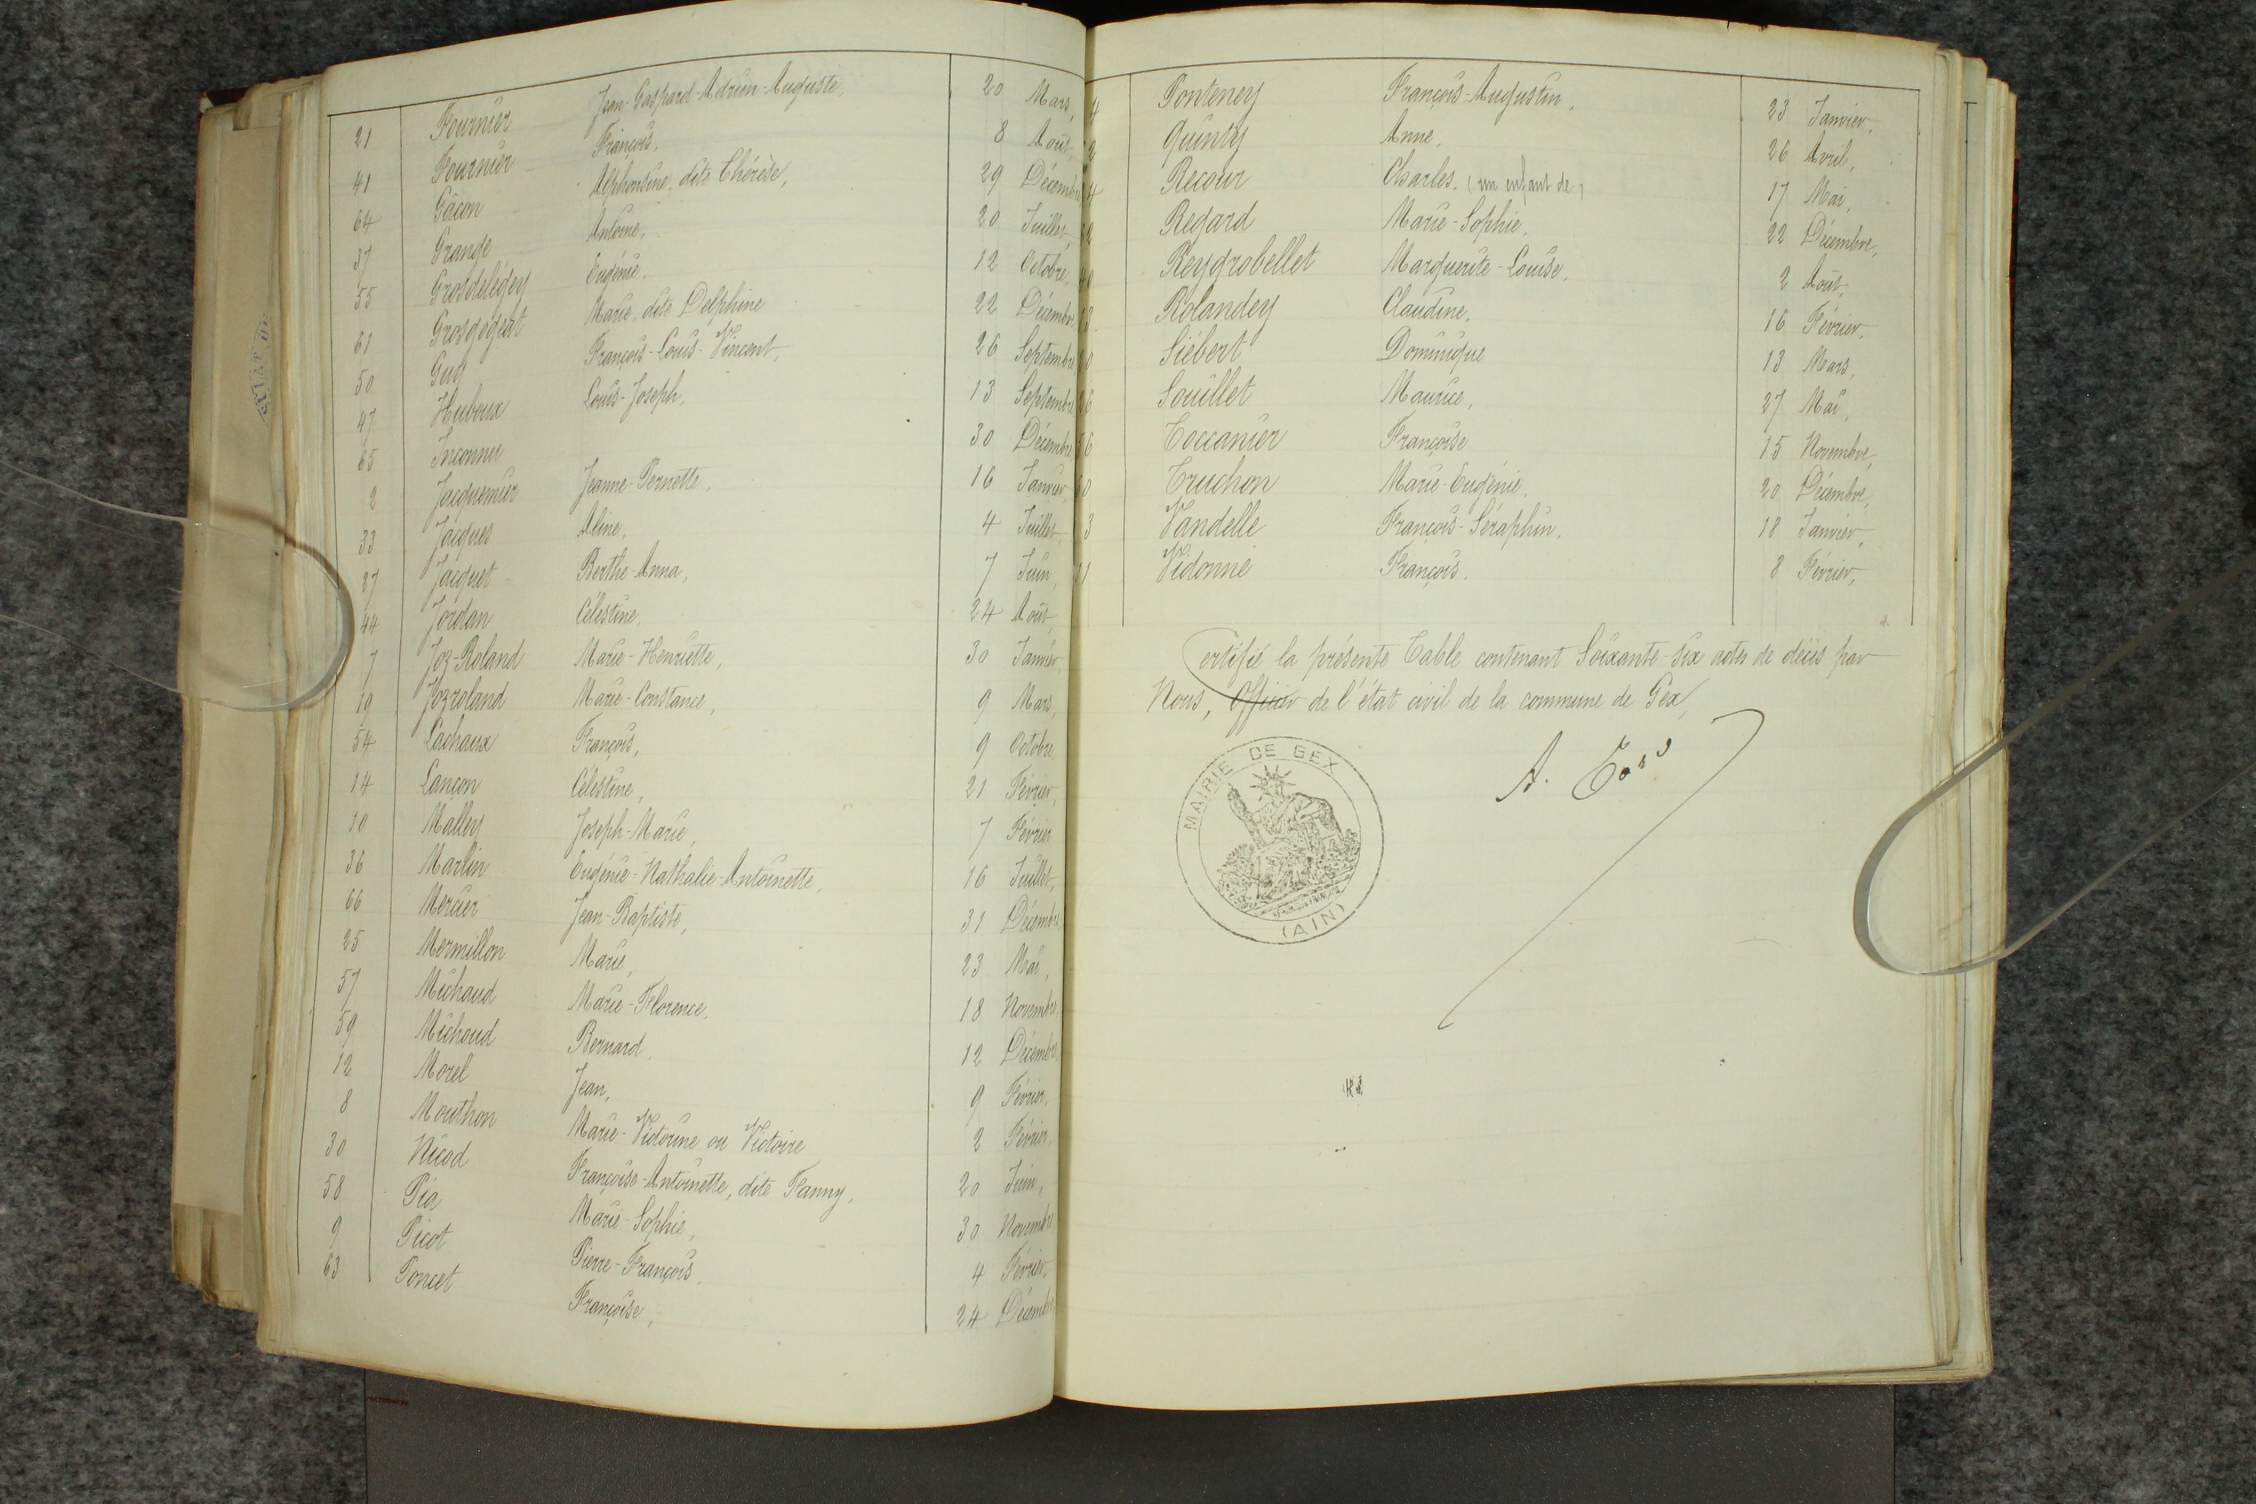 21 Fournier Jean-Gaspard-Adrien-Auguste, 20 Mars,
41 Fournier François, 8 Août,
64 Gâcon Alphonsine, dite Thérèse, 29 Décembre
37 Grange Antoine, 20 Juillet,
55 Grosdelégey Eugénie, 12 Octobre,
61 Grosgogeat Marie, dite Delphine 22 Décembre
50 Guy François-Louis-Vincent, 26 Septembre
47 Huboux Louis-Joseph, 13 Septembre
65 Inconnu 30 Décembre
2 Jacquemier Jeanne-Pernette, 16 Janvier
33 Jacques Aline, 4 Juillet,
27 Jacquet Berthe-Anna, 7 Juin,
44 Jordan Célestine, 24 Août,
7 Joz-Roland Marie-Henriette, 30 Janvier
19 Jozroland Marie-Constance, 9 Mars,
54 Lachaux François, 9 Octobre,
14 Lançon Célestine, 21 Février,
10 Malley Joseph-Marie, 7 Février
36 Marlin Eugénie-Nathalie-Antoinette, 16 Juillet,
66 Mercier Jean-Baptiste, 31 Décembre
25 Mermillon Marie, 23 Mai,
57 Michaud Marie-Florence, 18 Novembre
59 Michoud Bernard, 12 Décembre
12 Morel Jean, 9 Février,
8 Mouthon Marie-Victorine ou Victoire 2 Février,
30 Nicod Françoise-Antoinette, dite Fanny, 20 Juin,
58 Pia Marie-Sophie, 30 Novembre
9 Picot Pierre-François, 4 Février,
63 Poncet Françoise, 24 Décembre
4 Ponteney François-Augustin, 23 Janvier,
2 Quinty Anne, 26 Avril,
4 Recour Charles. (un enfant de) 17 Mai,
2 Regard Marie-Sophie, 22 Décembre,
40 Reygrobellet Marguerite-Louise, 2 Août,
13 Rolandey Claudine, 16 Février,
20 Siébert Dominique 13 Mars,
26 Souillet Maurice, 27 Mai,
56 Toccanier Françoise 15 Novembre,
60 Truchon Marie-Eugénie, 20 Décembre,
3 Vandelle François-Séraphin, 18 Janvier,
11 Vidonne François. 8 Février,
Certifié la présente Table contenant Soixante-Six actes de décès par
Nous, Officier de l'état civil de la commune de Gex,
MAIRIE DE GEX
(AIN)
A.